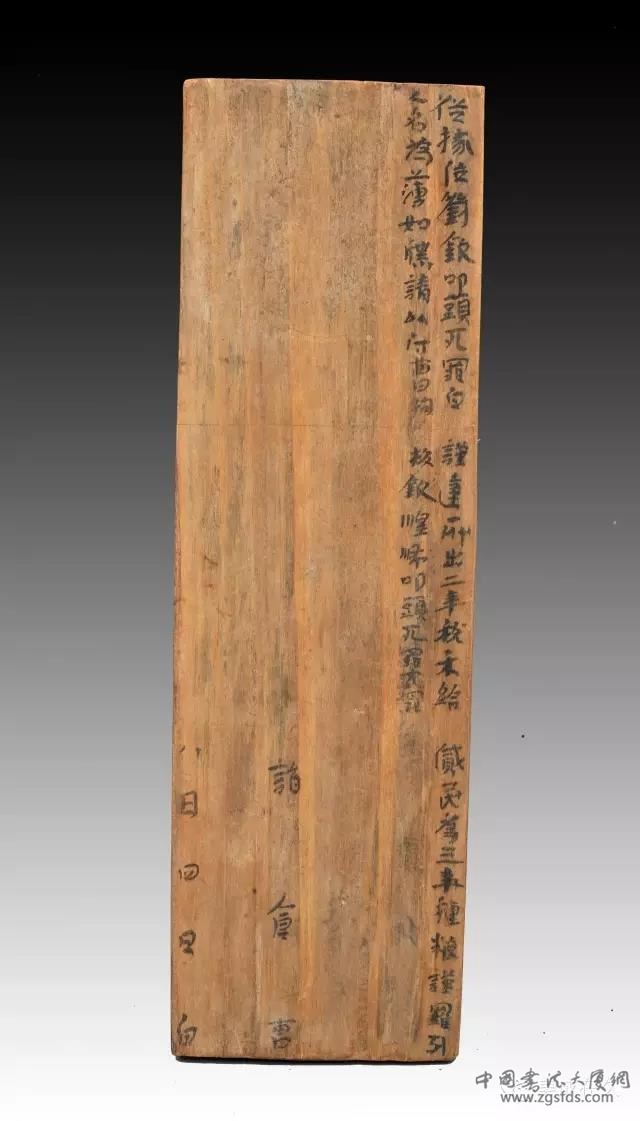 從掾位劉欽叩頭死罪白 謹達所出二年稅禾給 貸民為三年種粮謹羅列
人名為簿如牒請以付曹拘 校欽惶怖叩頭死罪死罪
詣 倉 曹
八月四日白
中國書法大廈網
www.zgsfds.com